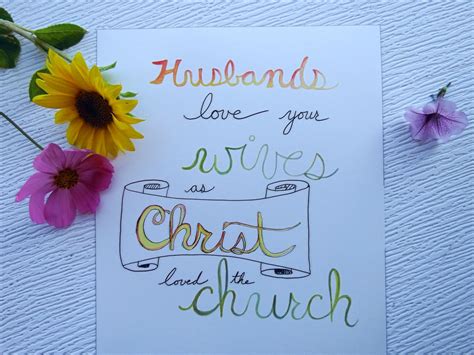 Husbands
love your
wives
as
Christ
loved the
church